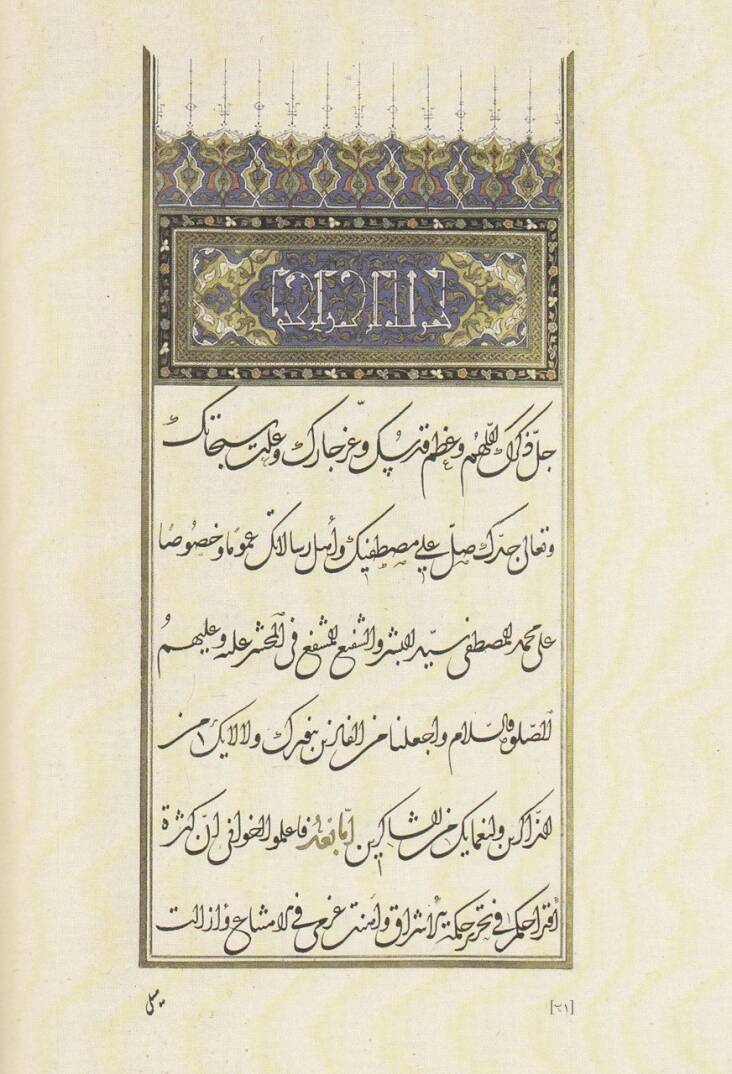 جلّ ذكرك اللهم وعظم قدسك وعزّ جارك وعلت سبحاتك
وتعالى جدّك صلّ على مصطفيك وأهل رسالاتك عموما وخصوصا
على محمد المصطفى سيّد البشر والشفيع المشفع في المحشر عليه وعليهم
الصّلوة والسّلام واجعلنا من الفائزين بنورك ولالايك من
الذاكرين ولنعمايك من الشاكرين أمّا بعد فاعلموا اخواني انّ كثرة
اقتراحكم في تحرير حكمة الاشراق وهنت عزمي في الامتناع وازالت
ميلى
[٢١]